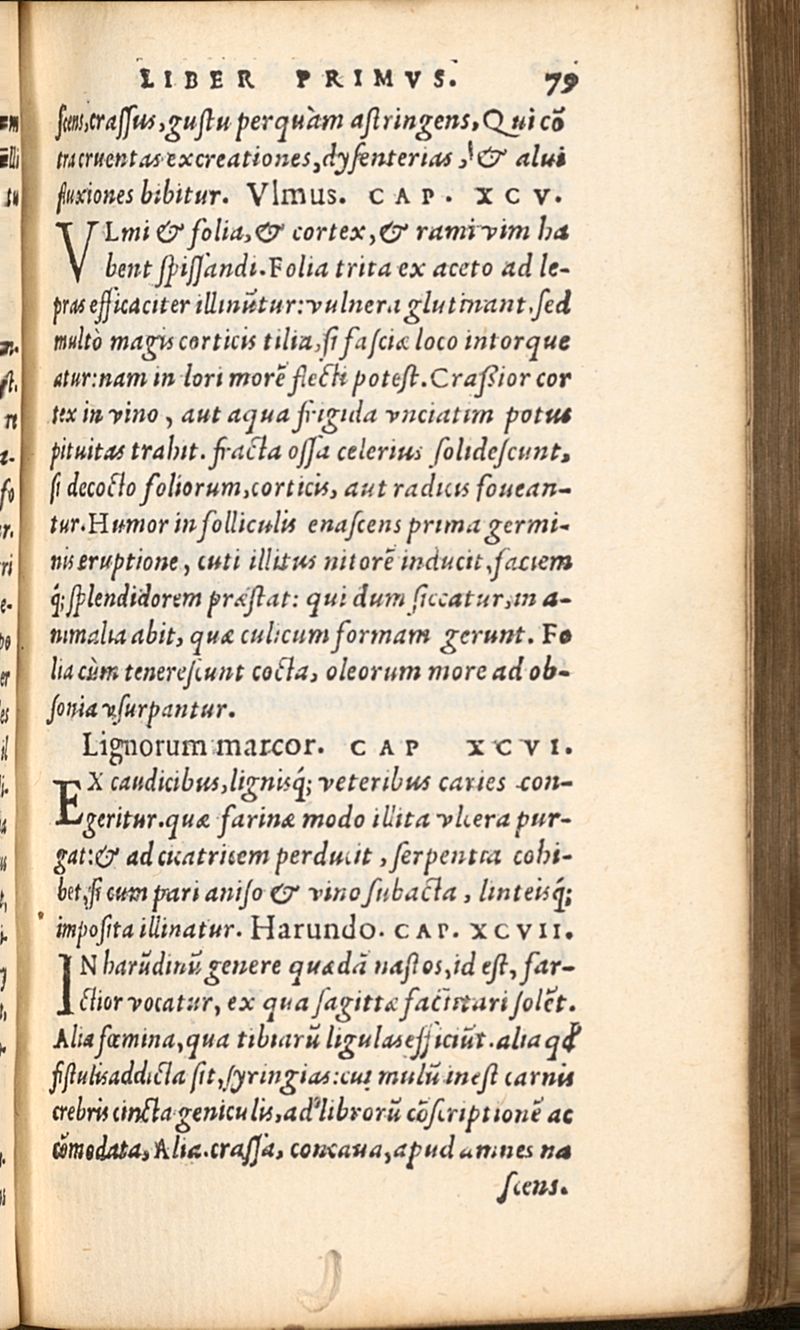 LIBER PRIMVS. 79
ſcens, craſſus, guſtu perquàm aſtringens, Qui cō
tra cruentas excreationes, dyſenterias, & alui
fluxiones bibitur. Vlmus. CAP. XCV.
VLmi & folia, & cortex, & rami vim ha
bent ſpiſſandi. Folia trita ex aceto ad le-
pras efficaciter illinūtur: vulnera glutinant, ſed
multò magis corticis tilia, ſi faſciæ loco intorque
atur: nam in lori morē flecti poteſt. Craſsior cor
tex in vino, aut aqua frigida vnciatim potus
pituitas trahit. fracta oſſa celerius ſolideſcunt,
ſi decocto foliorum, corticis, aut radicis fouean-
tur. Humor in folliculis enaſcens prima germi-
nis eruptione, cuti illitus nitorē inducit, faciem
q́; ſplendidorem præſtat: qui dum ſiccatur, in a-
nimalia abit, quæ culicum formam gerunt. Fo
lia cùm tenereſcunt cocta, oleorum more ad ob-
ſonia vſurpantur.
Lignorum marcor. CAP XCVI.
EX caudicibus, ligniſq́; veteribus caries con-
geritur. quæ farinæ modo illita vlcera pur-
gat: & ad cicatricem perducit, ſerpentia cohi-
bet, ſi cum pari aniſo & vino ſubacta, linteiſq́;
impoſita illinatur. Harundo. CAP. XCVII.
IN harūdinū genere quædā naſtos, id eſt, far-
ctior vocatur, ex qua ſagittæ factitari ſolēt.
Alia fœmina, qua tibiarū ligulas efficiūt. alia qđ
fiſtulis addicta ſit, ſyringias: cui mulū ineſt carnis
crebris cincta geniculis, ad librorū cōſcriptionē ac
cōmodata, Alia. craſſa, concaua, apud amnes na
ſcens.